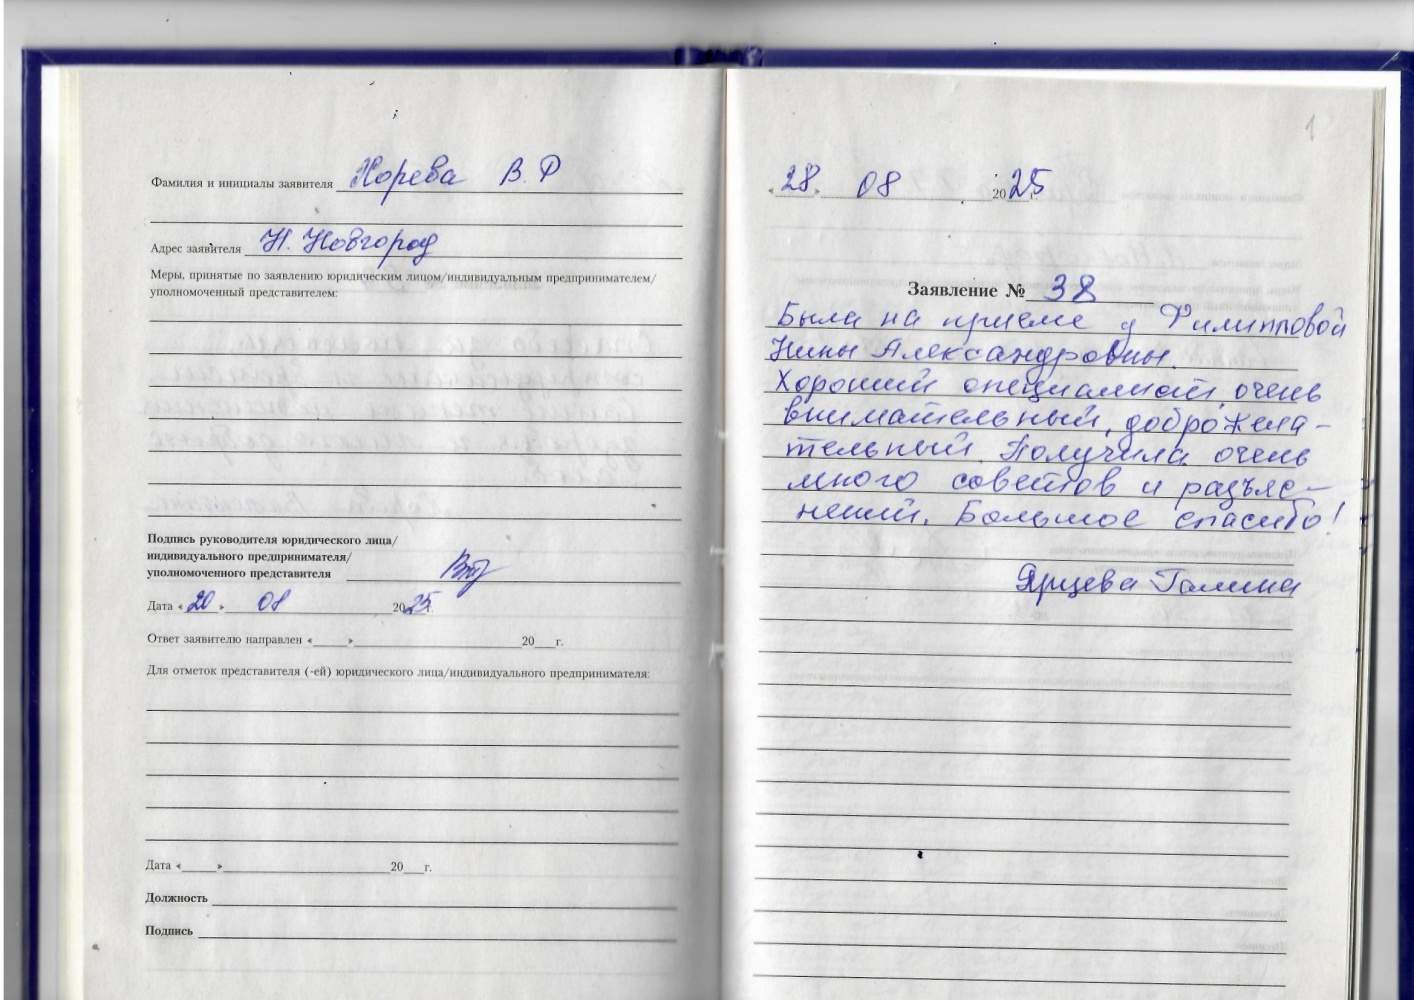 Фамилия и инициалы заявителя Хорева В.Р
Адрес заявителя Н. Новгород
Меры, принятые по заявлению юридическим лицом/индивидуальным предпринимателем/
уполномоченный представителем:
Подпись руководителя юридического лица/
индивидуального предпринимателя/
уполномоченного представителя
Дата «20» 08 2025г.
Ответ заявителю направлен «____»____________________ 20___г.
Для отметок представителя (-ей) юридического лица/индивидуального предпринимателя:
Дата «____»____________________ 20___г.
Должность
Подпись
1
«28» 08 2025г.
Заявление № 38
Была на приеме у Филипповой
Нины Александровны.
Хороший специалист, очень
внимательный, доброжела-
тельный. Получила очень
много советов и разъяс-
нений. Большое спасибо!
Ярцева Галина